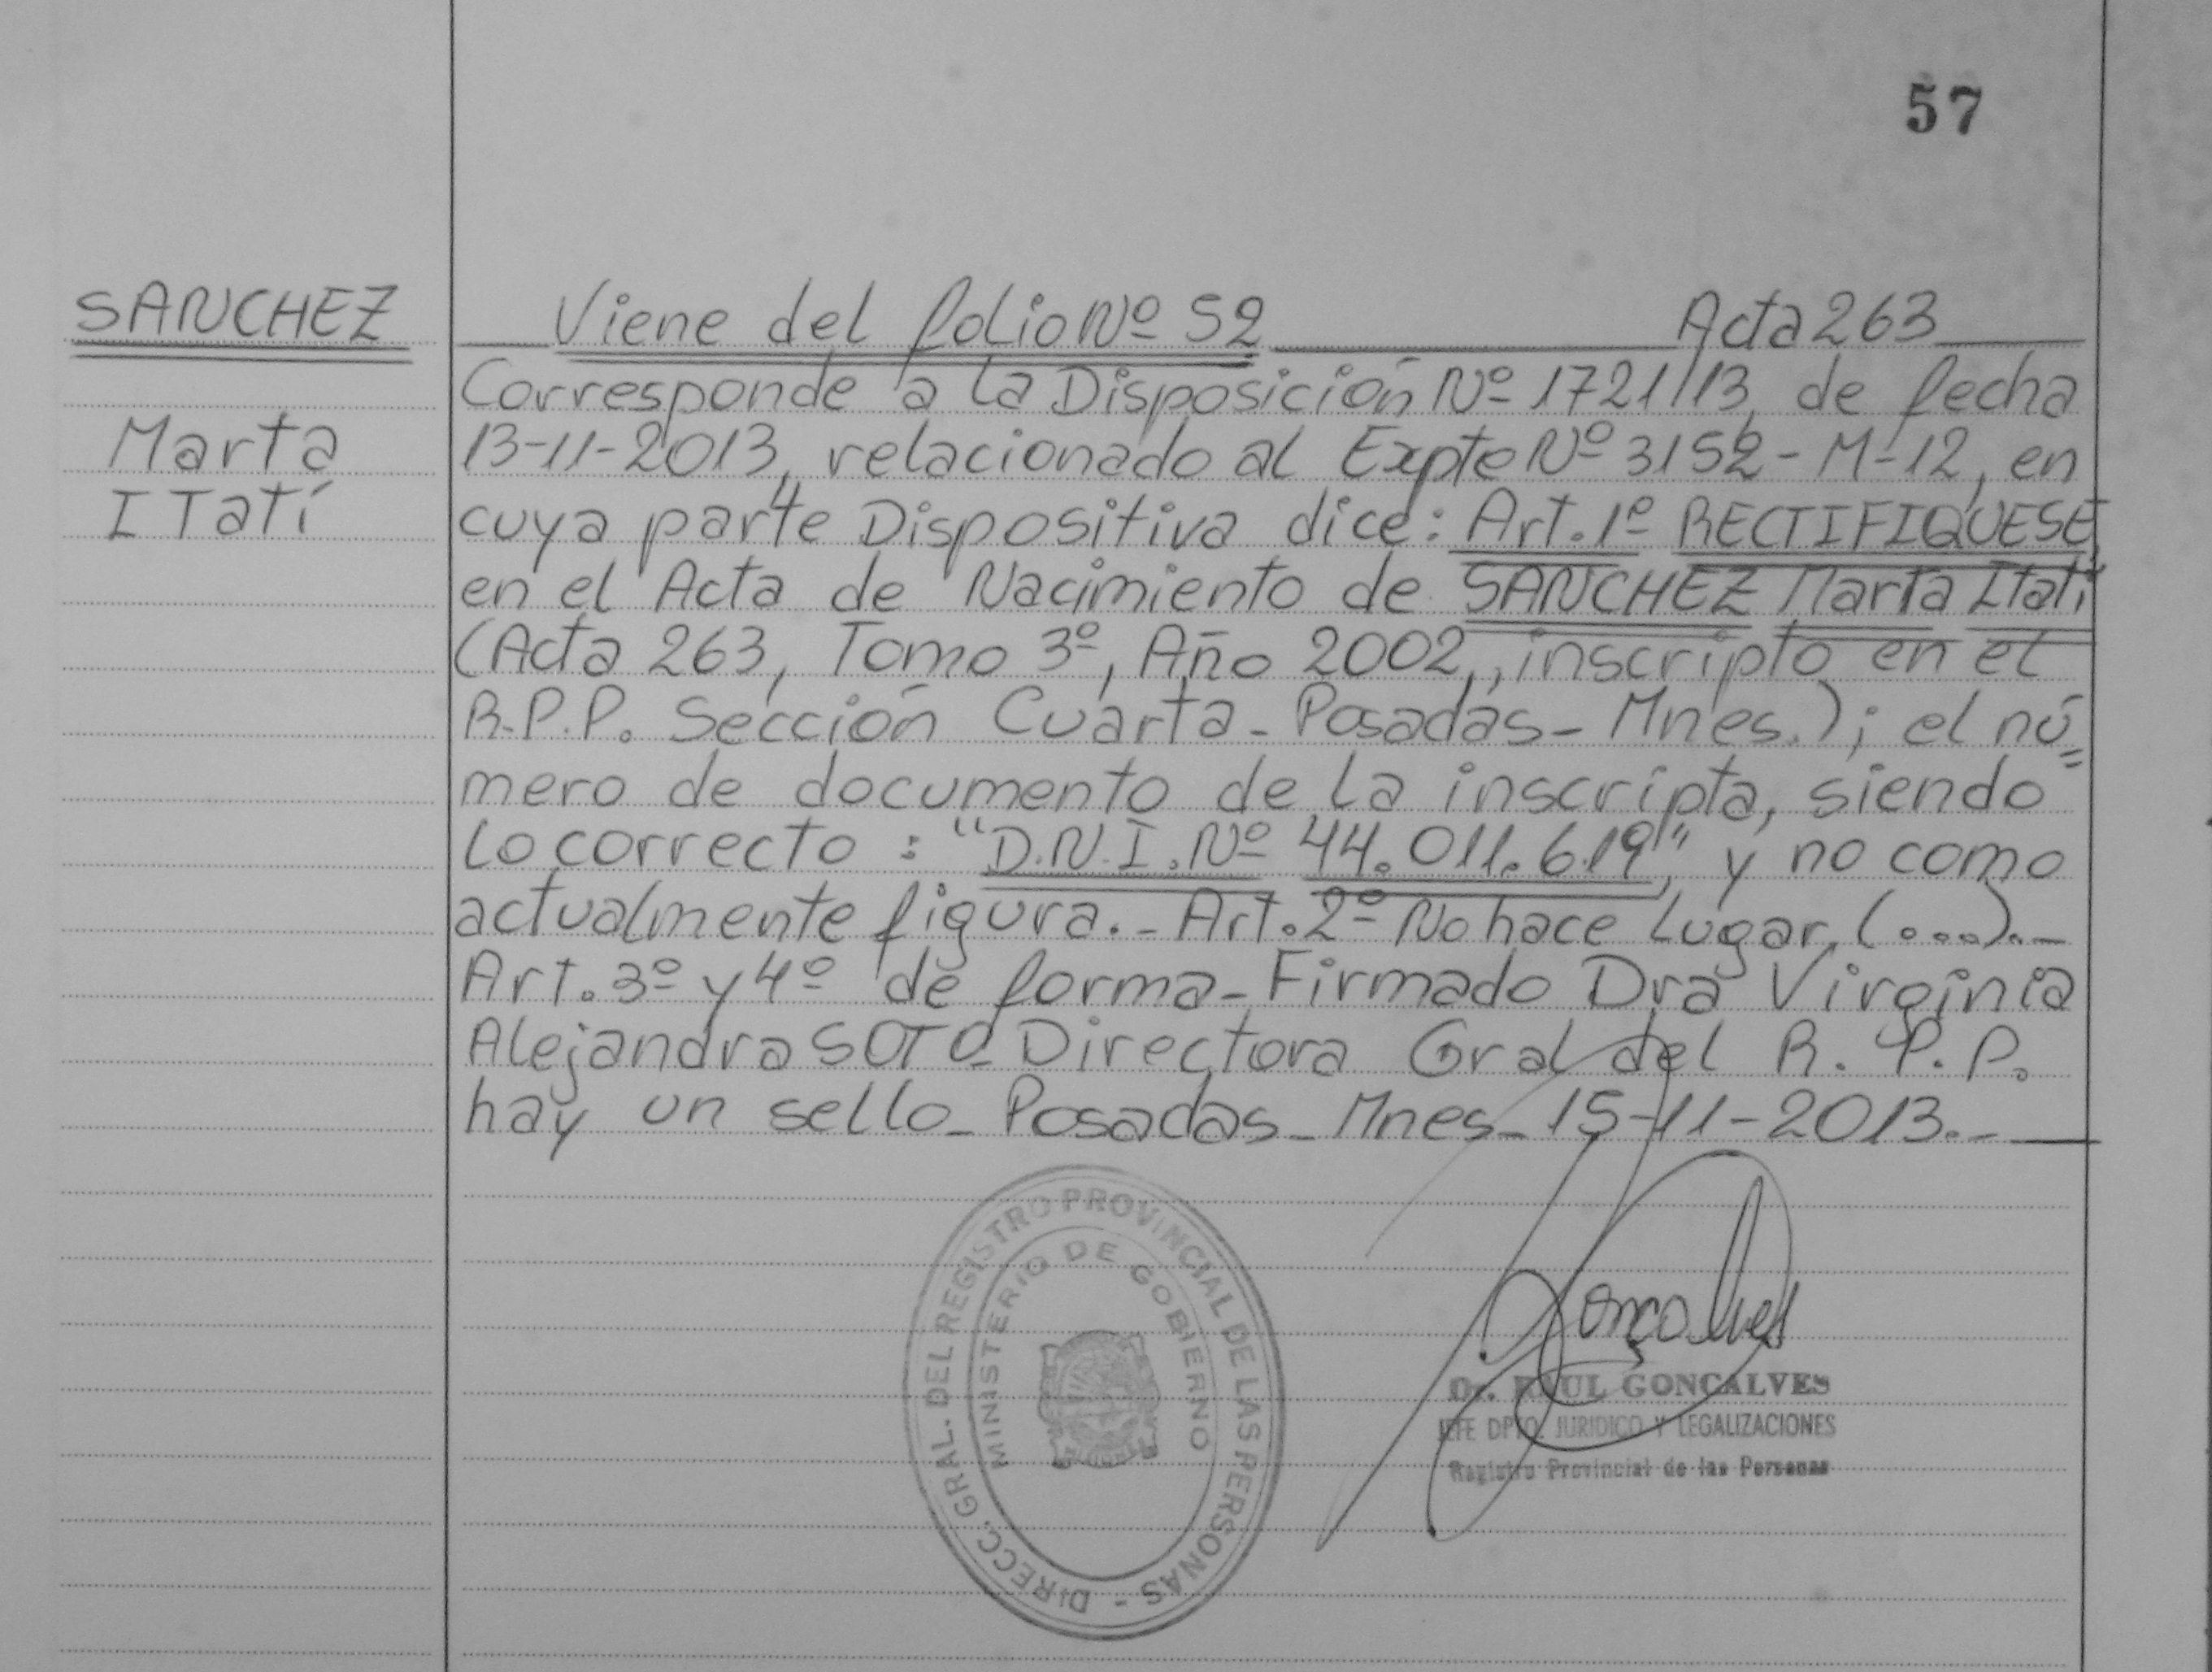 57
SANCHEZ
Marta
ITatí
Viene del folio Nº 52 Acta 263
Corresponde a la Disposición Nº 1721/13, de fecha
13-11-2013, relacionado al Expte Nº 3152-M-12, en
cuya parte Dispositiva dice: Art. 1º RECTIFIQUESE,
en el Acta de Nacimiento de SANCHEZ Marta Itatí
(Acta 263, Tomo 3º, Año 2002,, inscripto en el
R.P.P. Sección Cuarta - Posadas - Mnes.); el nú=
mero de documento de la inscripta, siendo
lo correcto : "D.N.I. Nº 44.011.619", y no como
actualmente figura.- Art. 2º No hace Lugar, (...).-
Art. 3º y 4º de forma - Firmado Dra Virginia
Alejandra SOTO - Directora Gral del R.P.P.
hay un sello - Posadas - Mnes - 15-11-2013.-
DIRECC. GRAL. DEL REGISTRO PROVINCIAL DE LAS PERSONAS -
MINISTERIO DE GOBIERNO
Gonçalves
Dr. RAUL GONCALVES
JEFE DPTO. JURIDICO Y LEGALIZACIONES
Registro Provincial de las Personas